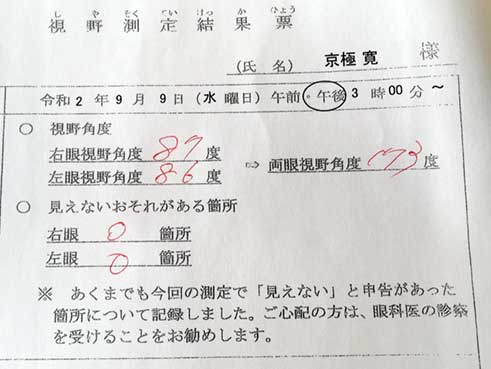 視野測定結果票
(氏名) 京極 寛 様
令和2年9月9日(水曜日) 午前・午後3時00分~
○ 視野角度
右眼視野角度 87 度
左眼視野角度 86 度 ⇨ 両眼視野角度 173 度
○ 見えないおそれがある箇所
右眼 0 箇所
左眼 0 箇所
※ あくまでも今回の測定で「見えない」と申告があった
箇所について記録しました。ご心配の方は、眼科医の診察
を受けることをお勧めします。